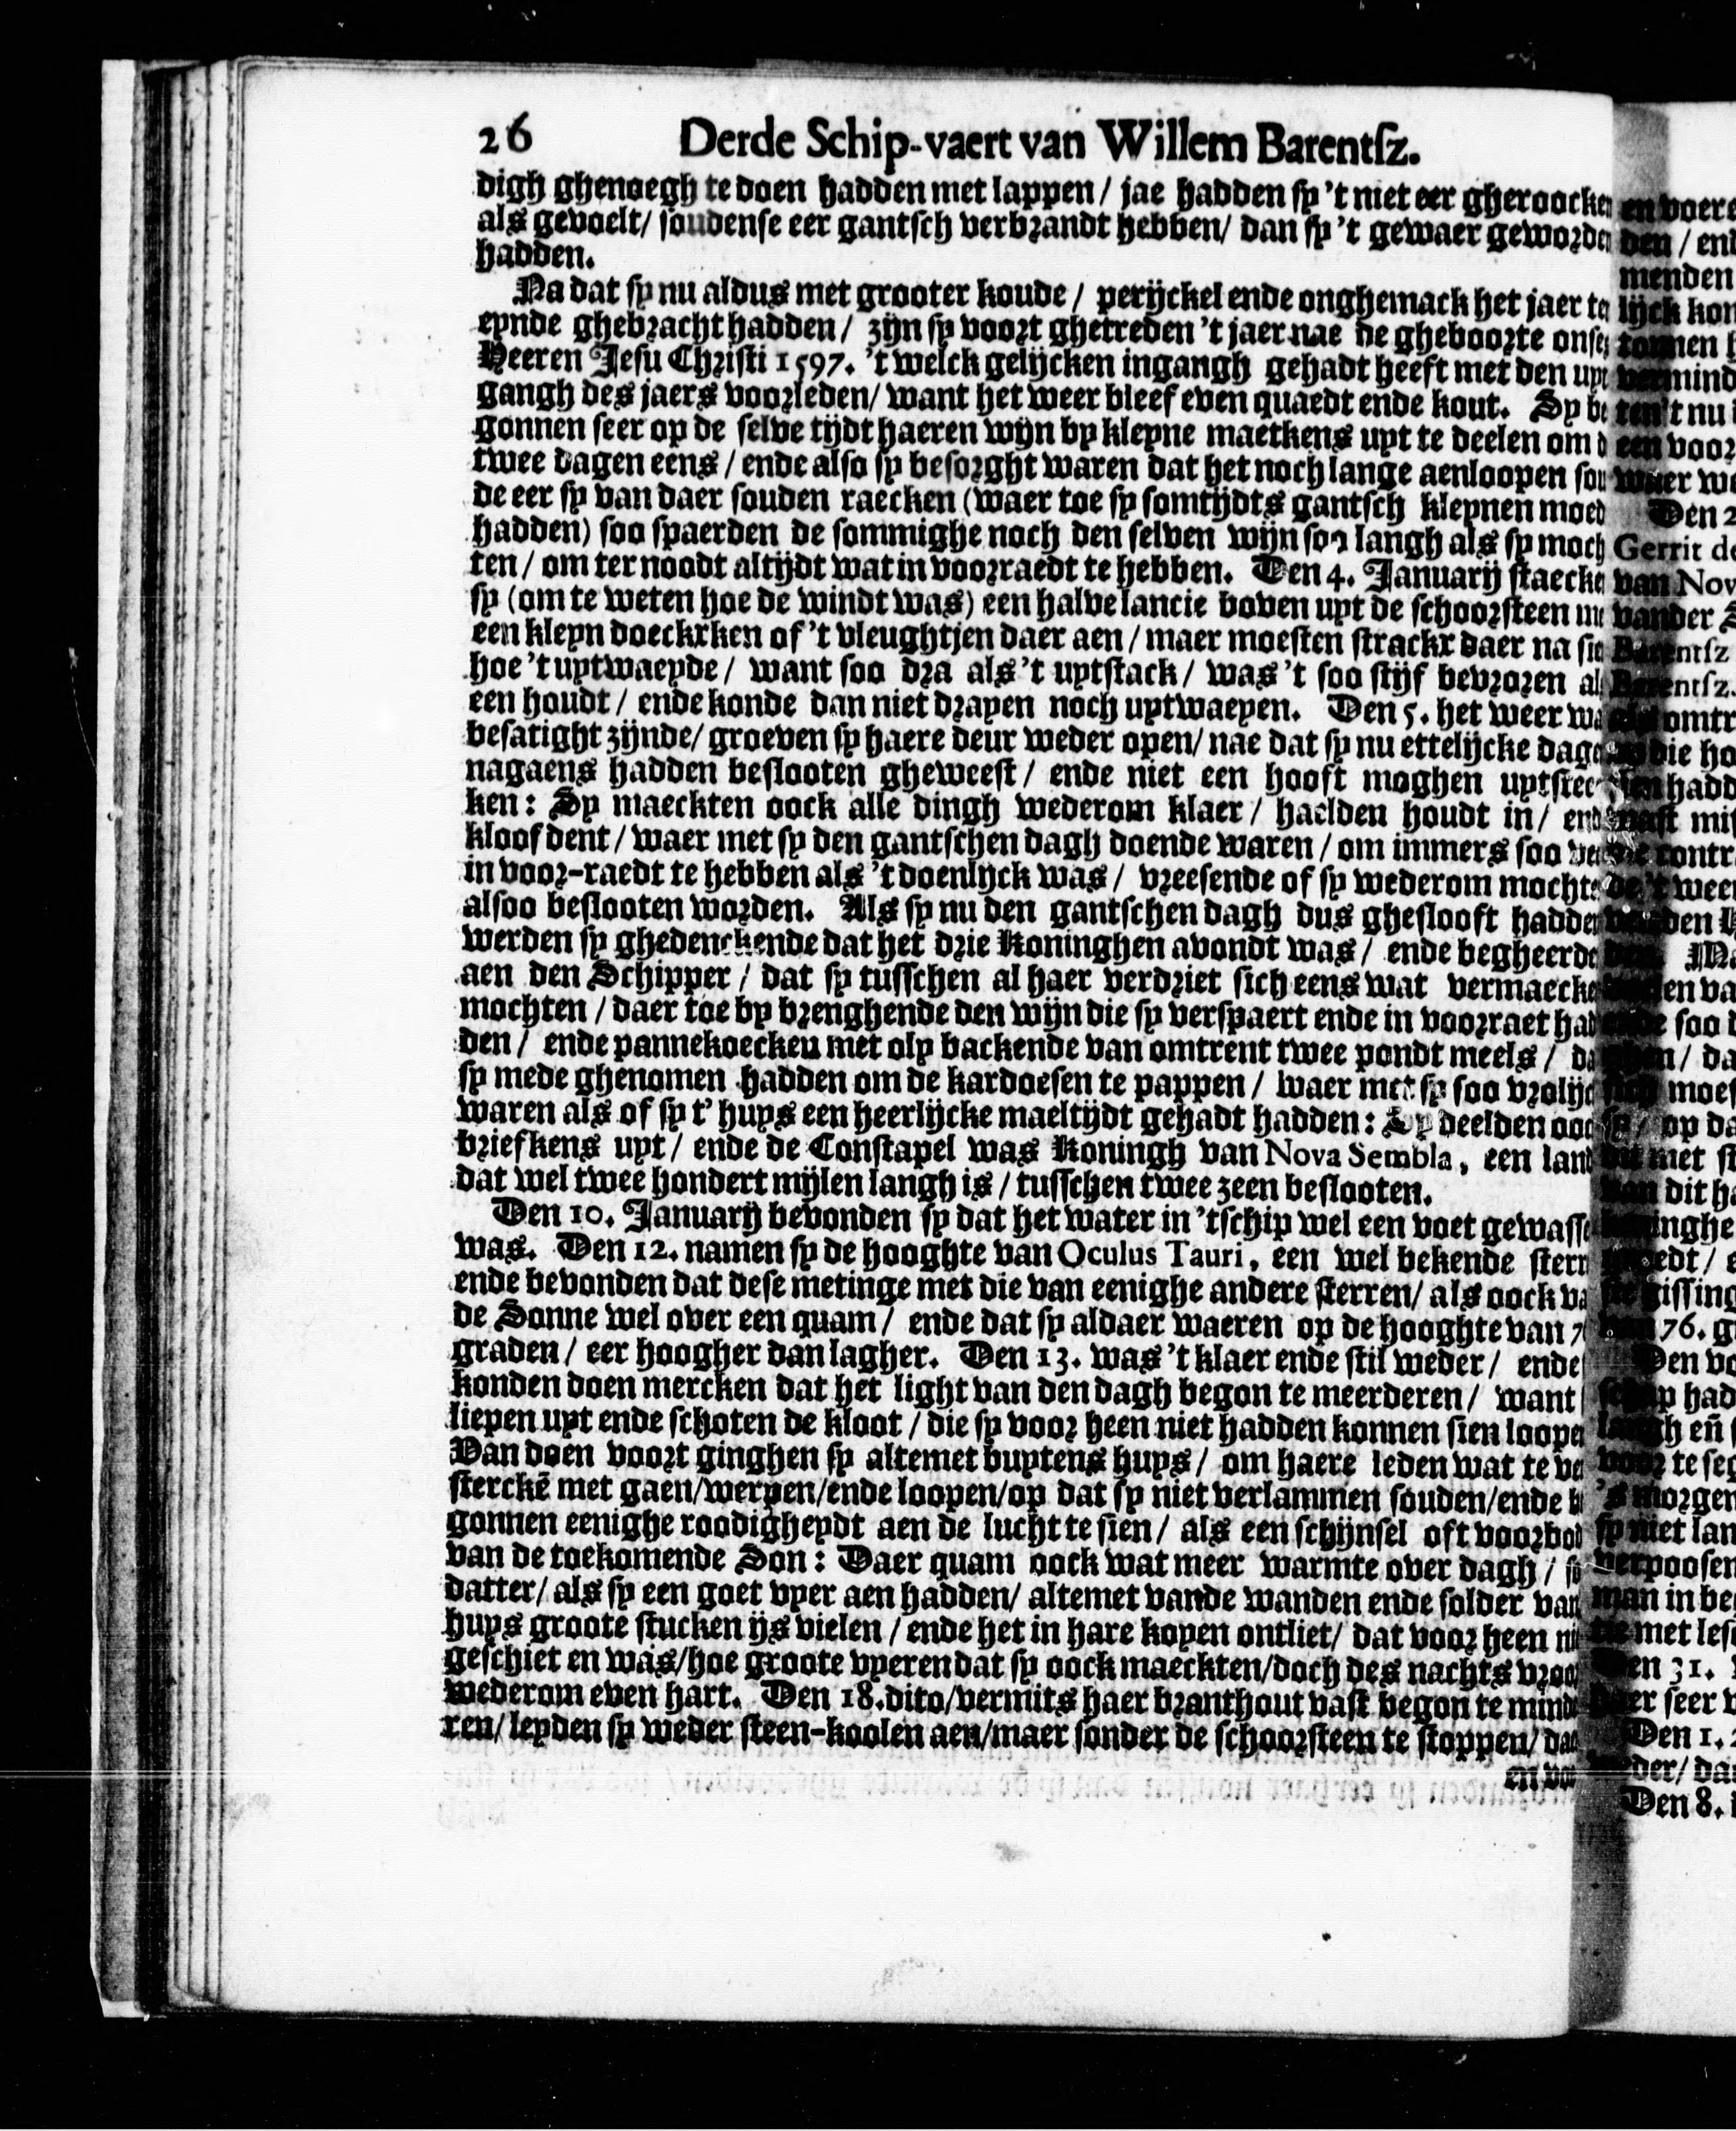 26 Derde Schip-vaert van Willem Barentsz.
digh ghenoegh te doen hadden met lappen / jae hadden sy 't niet eer gheroocken
als gevoelt / soudense eer gantsch verbrandt hebben / dan sy 't gewaer geworden
hadden.
Na dat sy nu aldus met grooter koude / perijckel ende onghemack het jaer te
eynde ghebracht hadden / zijn sy voort ghetreden 't jaer nae de gheboorte onses
Heeren Jesu Christi 1597. 't welck gelijcken ingangh gehadt heeft met den uyt
gangh des jaers voorleden / want het weer bleef even quaedt ende kout. Sy be
gonnen seer op de selve tijdt haeren wijn by kleyne maetkens uyt te deelen om d
twee dagen eens / ende also sy besorght waren dat het noch lange aenloopen sou
de eer sy van daer souden raecken (waer toe sy somtijdts gantsch kleynen moed
hadden) soo spaerden de sommighe noch den selven wijn soo langh als sy moch
ten / om ter noodt altijdt wat in voorraedt te hebben. Den 4. Januarij staecke
sy (om te weten hoe de windt was) een halve lancie boven uyt de schoorsteen me
een kleyn doeckxken of 't vleughtjen daer aen / maer moesten strackx daer na sie
hoe 't uytwaeyde / want soo dra als 't uytstack / was 't soo stijf bevroren al
een houdt / ende konde dan niet drayen noch uytwaeyen. Den 5. het weer wa
besatight zijnde / groeven sy haere deur weder open / nae dat sy nu ettelijcke dage
nagaens hadden beslooten gheweest / ende niet een hooft moghen uytstec
ken: Sy maeckten oock alle dingh wederom klaer / haelden houdt in / end
kloofdent / waer met sy den gantschen dagh doende waren / om immers soo vee
in voor-raedt te hebben als 't doenlijck was / vreesende of sy wederom mochte
alsoo beslooten worden. Als sy nu den gantschen dagh dus gheslooft hadden
werden sy ghedenckende dat het drie Koninghen avondt was / ende begheerde
aen den Schipper / dat sy tusschen al haer verdriet sich eens wat vermaecke
mochten / daer toe by brenghende den wijn die sy verspaert ende in voorraet had
den / ende pannekoecken met oly backende van omtrent twee pondt meels / da
sy mede ghenomen hadden om de kardoesen te pappen / waer met sy soo vrolijc
waren als of sy t' huys een heerlijcke maeltijdt gehadt hadden: Sy deelden ooc
briefkens uyt / ende de Constapel was Koningh van Nova Sembla, een land
dat wel twee hondert mijlen langh is / tusschen twee zeen beslooten.
Den 10. Januarij bevonden sy dat het water in 'tschip wel een voet gewasse
was. Den 12. namen sy de hooghte van Oculus Tauri, een wel bekende sterr
ende bevonden dat dese metinge met die van eenighe andere sterren / als oock va
de Sonne wel over een quam / ende dat sy aldaer waeren op de hooghte van 7
graden / eer hoogher dan lagher. Den 13. was 't klaer ende stil weder / ende
konden doen mercken dat het light van den dagh begon te meerderen / want
liepen uyt ende schoten de kloot / die sy voor heen niet hadden konnen sien loope
Van doen voort ginghen sy altemet buytens huys / om haere leden wat te ve
sterckē met gaen/werpen/ende loopen/op dat sy niet verlammen souden/ende b
gonnen eenighe roodigheydt aen de lucht te sien / als een schijnsel oft voorbod
van de toekomende Son: Daer quam oock wat meer warmte over dagh / so
datter / als sy een goet vyer aen hadden / altemet vande wanden ende solder van
huys groote stucken ijs vielen / ende het in hare koyen ontliet / dat voor heen ni
geschiet en was/hoe groote vyeren dat sy oock maeckten/doch des nachts vroo
wederom even hart. Den 18. dito/vermits haer branthout vast begon te mind
ren/leyden sy weder steen-koolen aen/maer sonder de schoorsteen te stoppen/dae
en voe